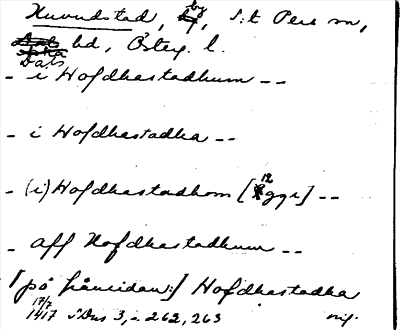 Huvudstad, by, S:t Pers sn,
Dals hd, Österg. l.
- i Hofdhastadhum --
- i Hofdhastadha --
- (i) Hofdhastadhom [12 ggr] --
- aff Hofdhastadhum --
[på framsidan:] Hofdhastadha
17/7 1417 SDns 3, s. 262, 263 orig.